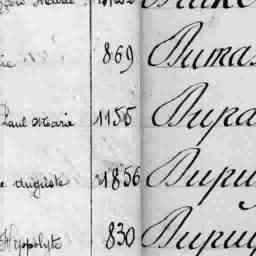 869 Dumas
Paul Marie 1155 Dupa
e auguste 1856 Dupu
Hippolyte 830 Dupuy